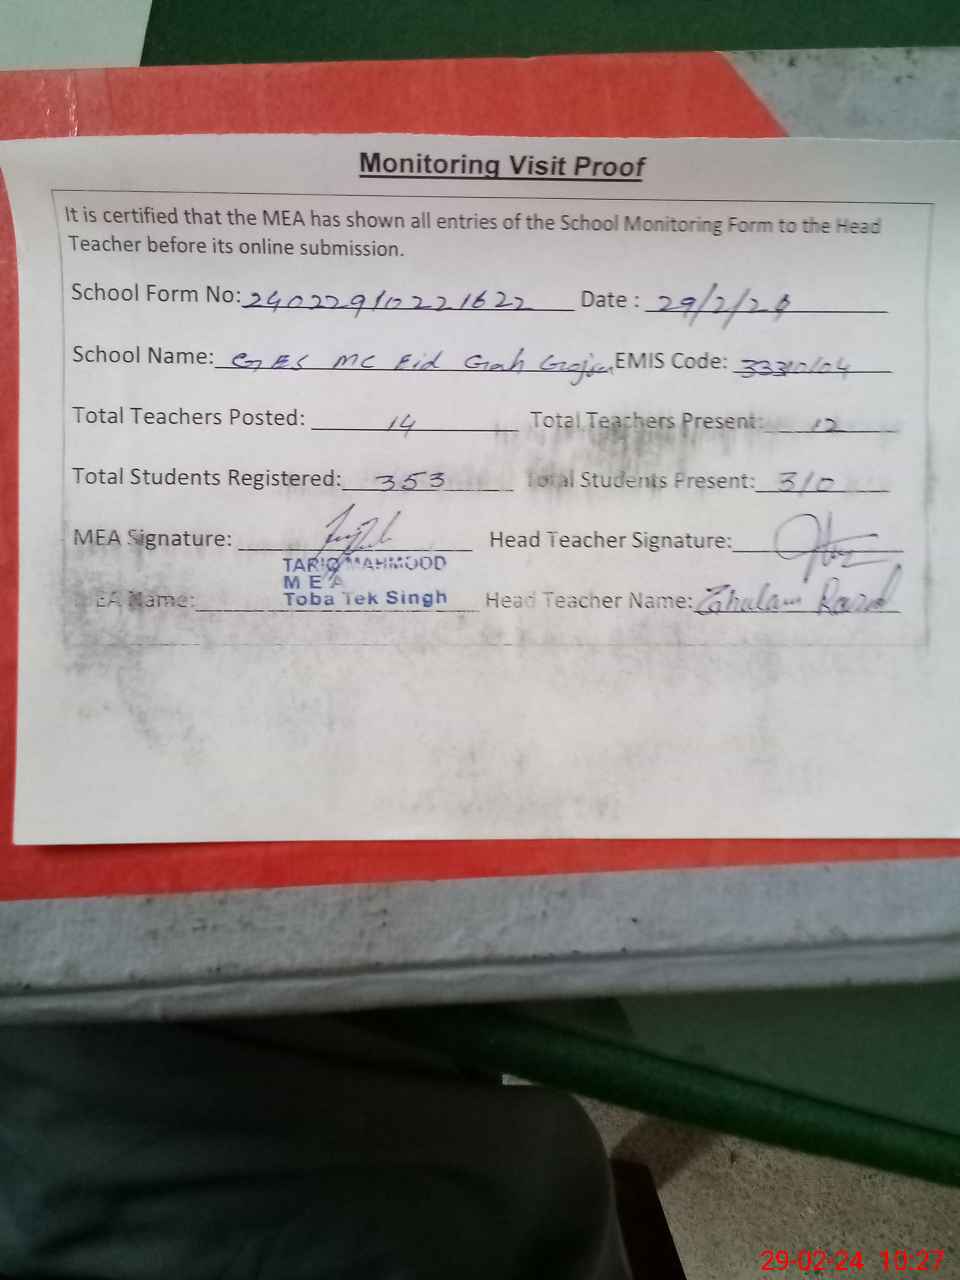 Monitoring Visit Proof
It is certified that the MEA has shown all entries of the School Monitoring Form to the Head
Teacher before its online submission.
School Form No: 24022910221622 Date : 29/2/24
School Name: GES MC Eid Gah Gojra EMIS Code: 33310104
Total Teachers Posted: 14 Total Teachers Present: 12
Total Students Registered: 353 Total Students Present: 310
MEA Signature: Head Teacher Signature:
TARIQ MAHMOOD
M E A
MEA Name: Toba Tek Singh Head Teacher Name:
29-02-24 10:27